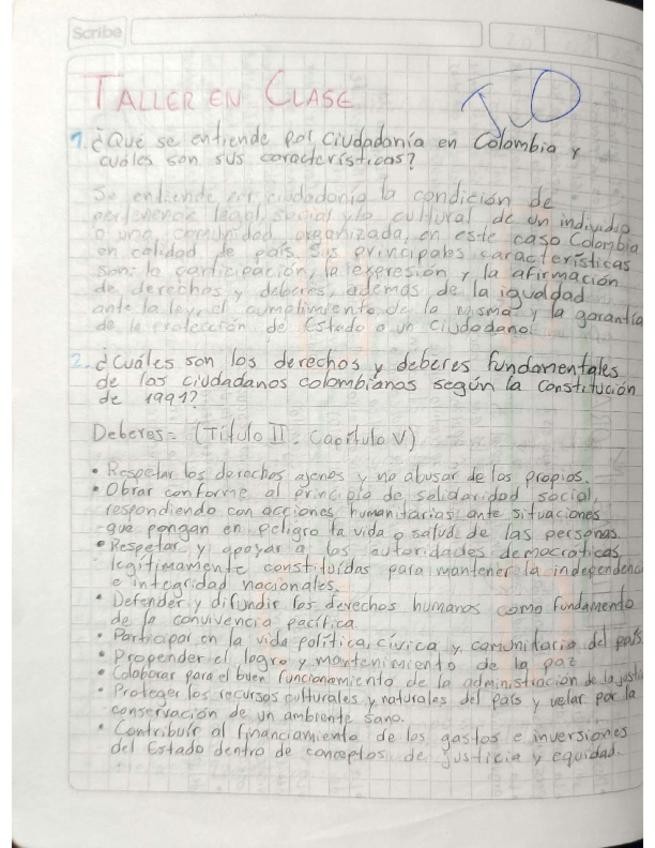 Scribe
TALLER EN CLASE
1. ¿Qué se entiende por ciudadanía en Colombia y
cuáles son sus características?
Se entiende por ciudadanía la condición de
pertenencia legal, social y/o cultural de un individuo
a una comunidad organizada, en este caso Colombia
en calidad de país. Sus principales características
son: la participación, la expresión y la afirmación
de derechos y deberes, además de la igualdad
ante la ley, el cumplimiento de la misma y la garantía
de la protección de Estado a un ciudadano.
2. ¿Cuáles son los derechos y deberes fundamentales
de los ciudadanos colombianos según la constitución
de 1991?
Deberes= (Título II. Capítulo V)
• Respetar los derechos ajenos y no abusar de los propios.
• Obrar conforme al principio de solidaridad social,
respondiendo con acciones humanitarias ante situaciones
que pongan en peligro la vida o salud de las personas.
• Respetar y apoyar a las autoridades democráticas
legítimamente constituídas para mantener la independenc
e integridad nacionales.
• Defender y difundir los derechos humanos como fundamento
de la convivencia pacífica.
• Participar en la vida política, cívica y comunitaria del país
• Propender el logro y mantenimiento de la paz
• Colaborar para el buen funcionamiento de la administración de la justi
• Proteger los recursos culturales y naturales del país y velar por la
conservación de un ambiente sano.
• Contribuír al financiamiento de los gastos e inversiones
del Estado dentro de conceptos de justicia y equidad.